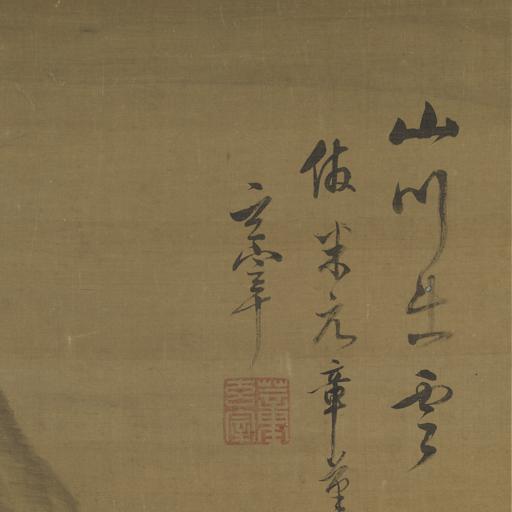 山川出雲
倣米元章筆
玄宰